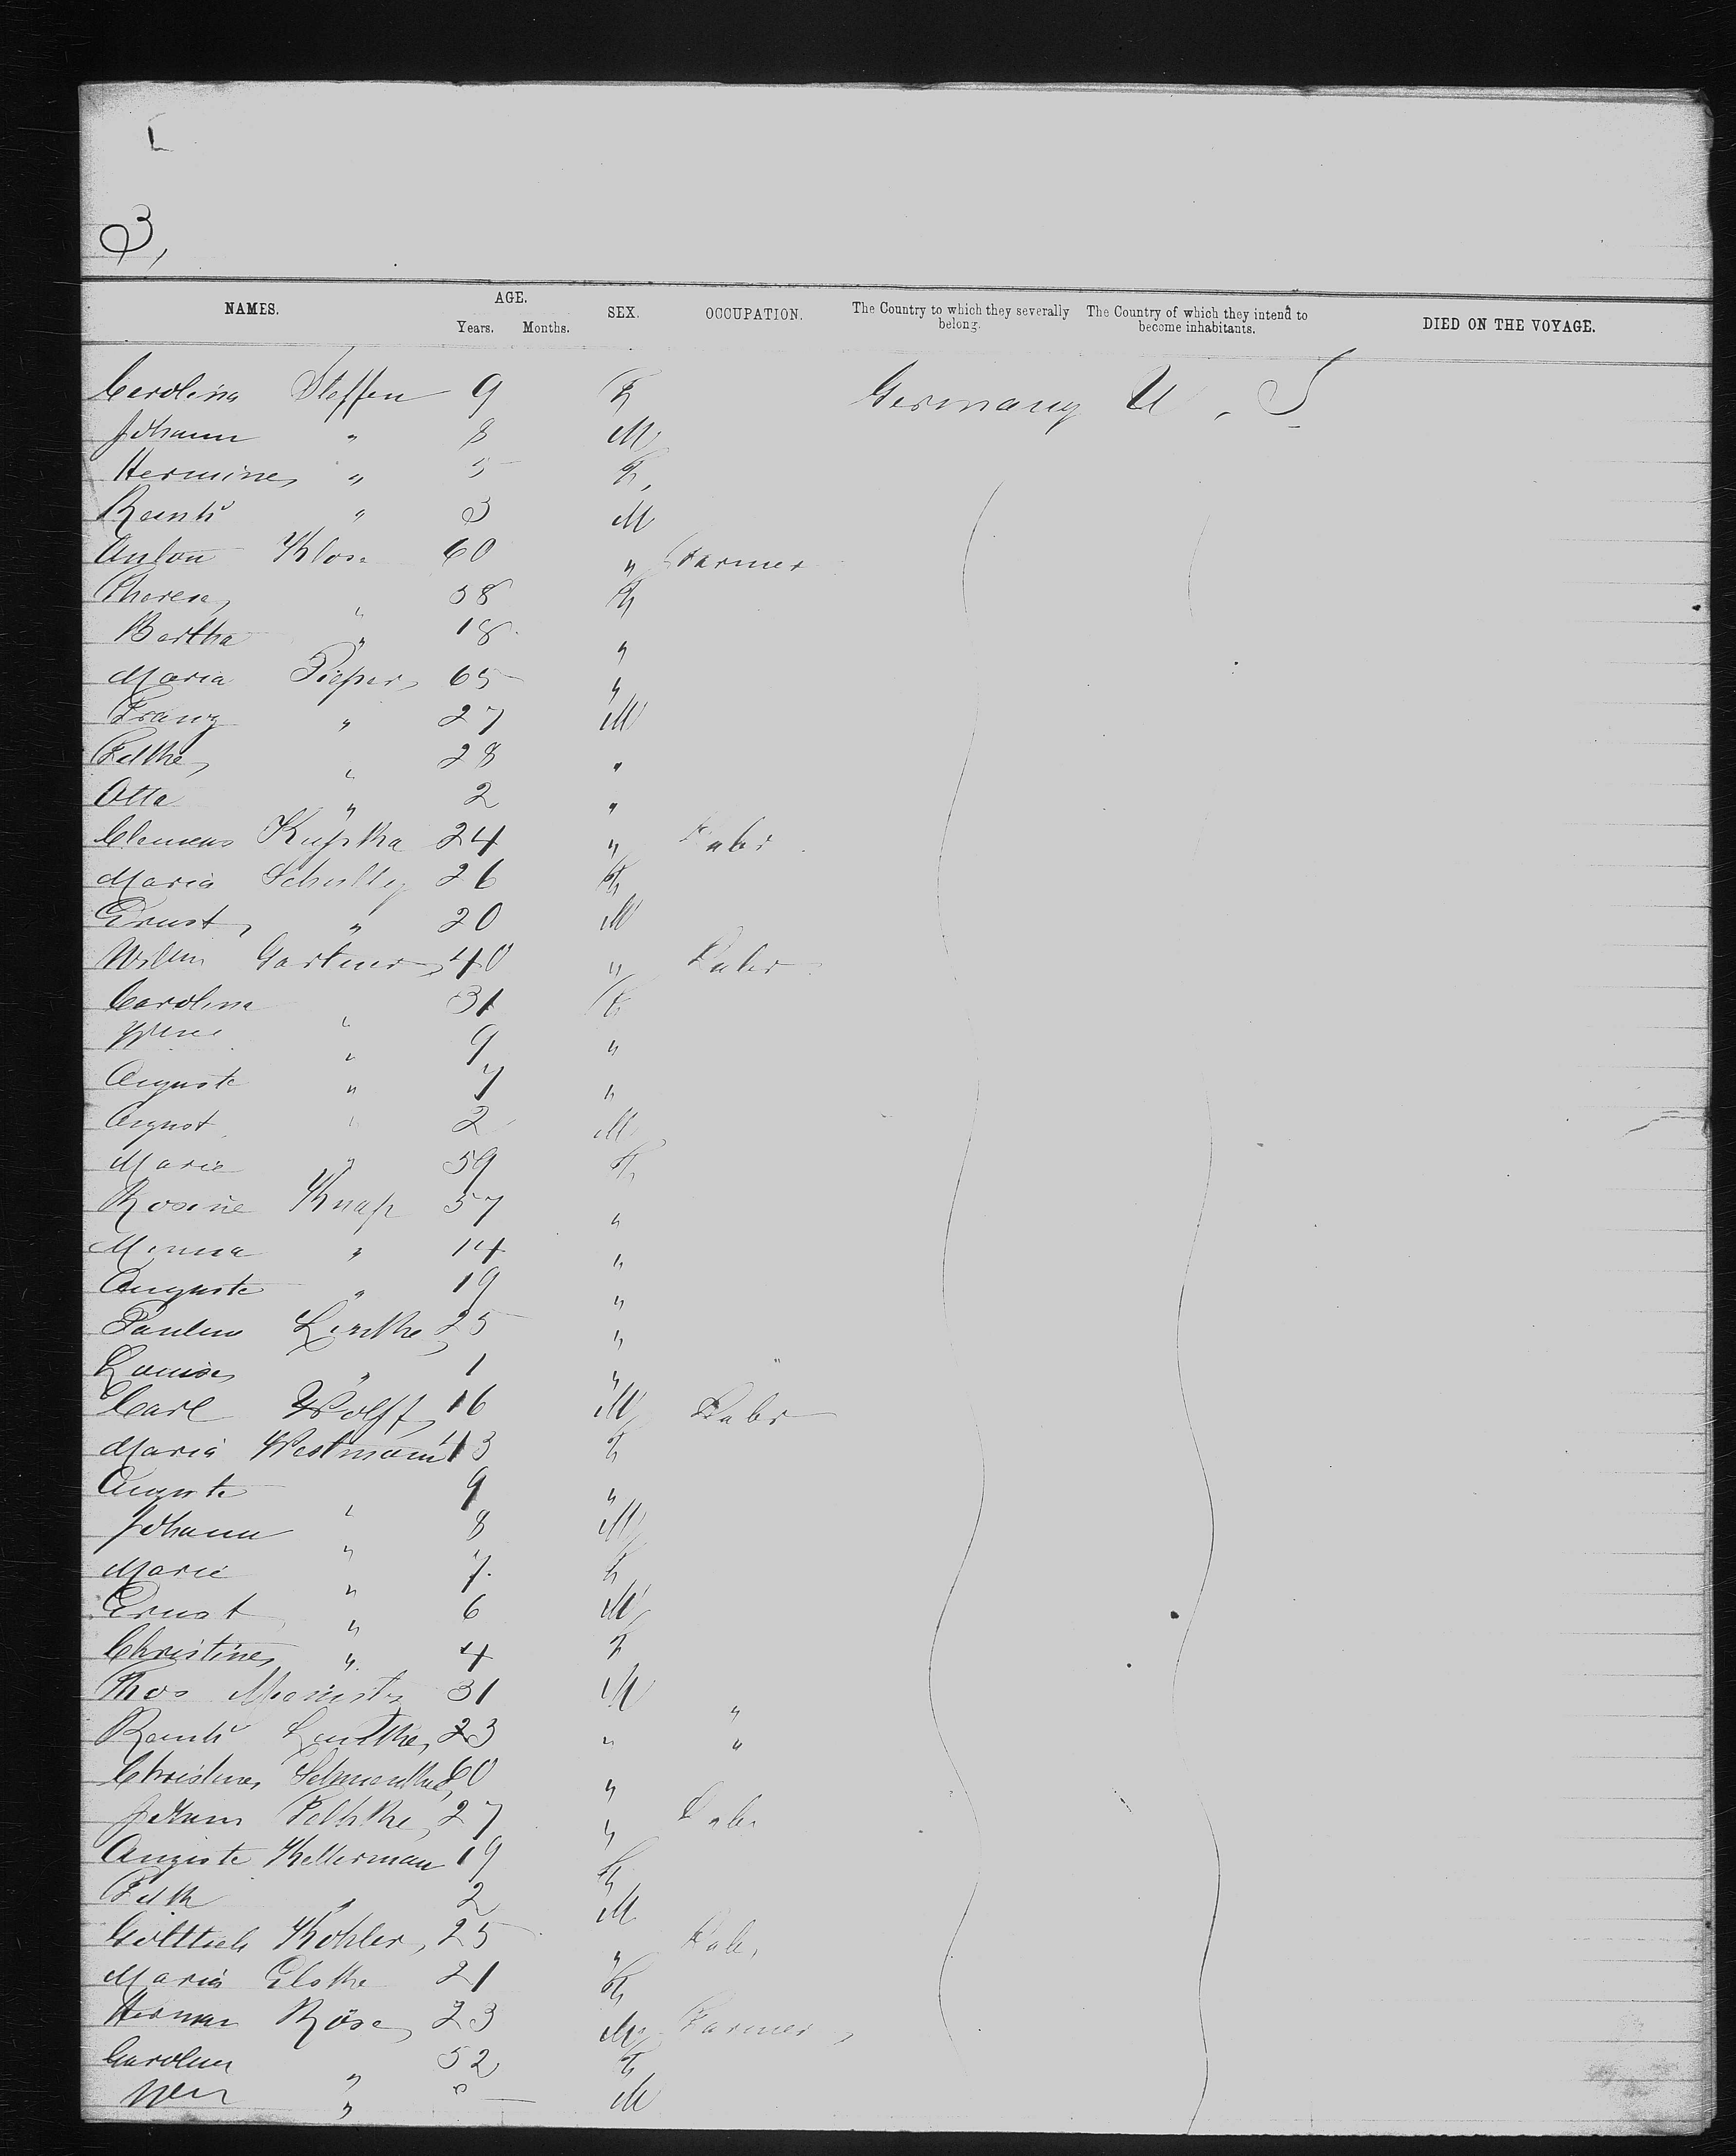 3,
NAMES. AGE. Years. Months. SEX. OCCUPATION. The Country to which they severally belong. The Country of which they intend to become inhabitants. DIED ON THE VOYAGE.
Carolina Steffen 9 F Germany U. S
Johann " 8 M
Hermine " 5 F,
" 3 M
Anton Klose 60 " Farmer
Theresa " 58 F
Bertha " 18 "
Maria Pieper 65 "
Franz " 27 M
" 28 "
Otto " 2 "
Clemens 24 " Labr
Maria 26 F
Ernst " 20 M
Wilhm Gartner 40 " Labr
Carolina " 31 F
" 9 "
Auguste " 7 "
August " 2 M
Marie " 59 F
Rosine Knap 57 "
Minna " 14 "
Auguste " 19 "
Pauline 25 "
Louise " 1 " "
Carl Wolff 16 M Labr
Maria Westmann 43 F
Auguste " 9 "
Johann " 8 M
Marie " 7 F
Ernst " 6 M
Christine " 4 F
Thos 31 M "
23 " "
Christine 60 "
Johann 27 " Labr
Auguste Kellerman 19 F
" 2 M
Gottlieb Kohler, 25 " Labr
Maria 21 F
Herman Röse 23 M Farmer,
Carolina " 52 F
" M